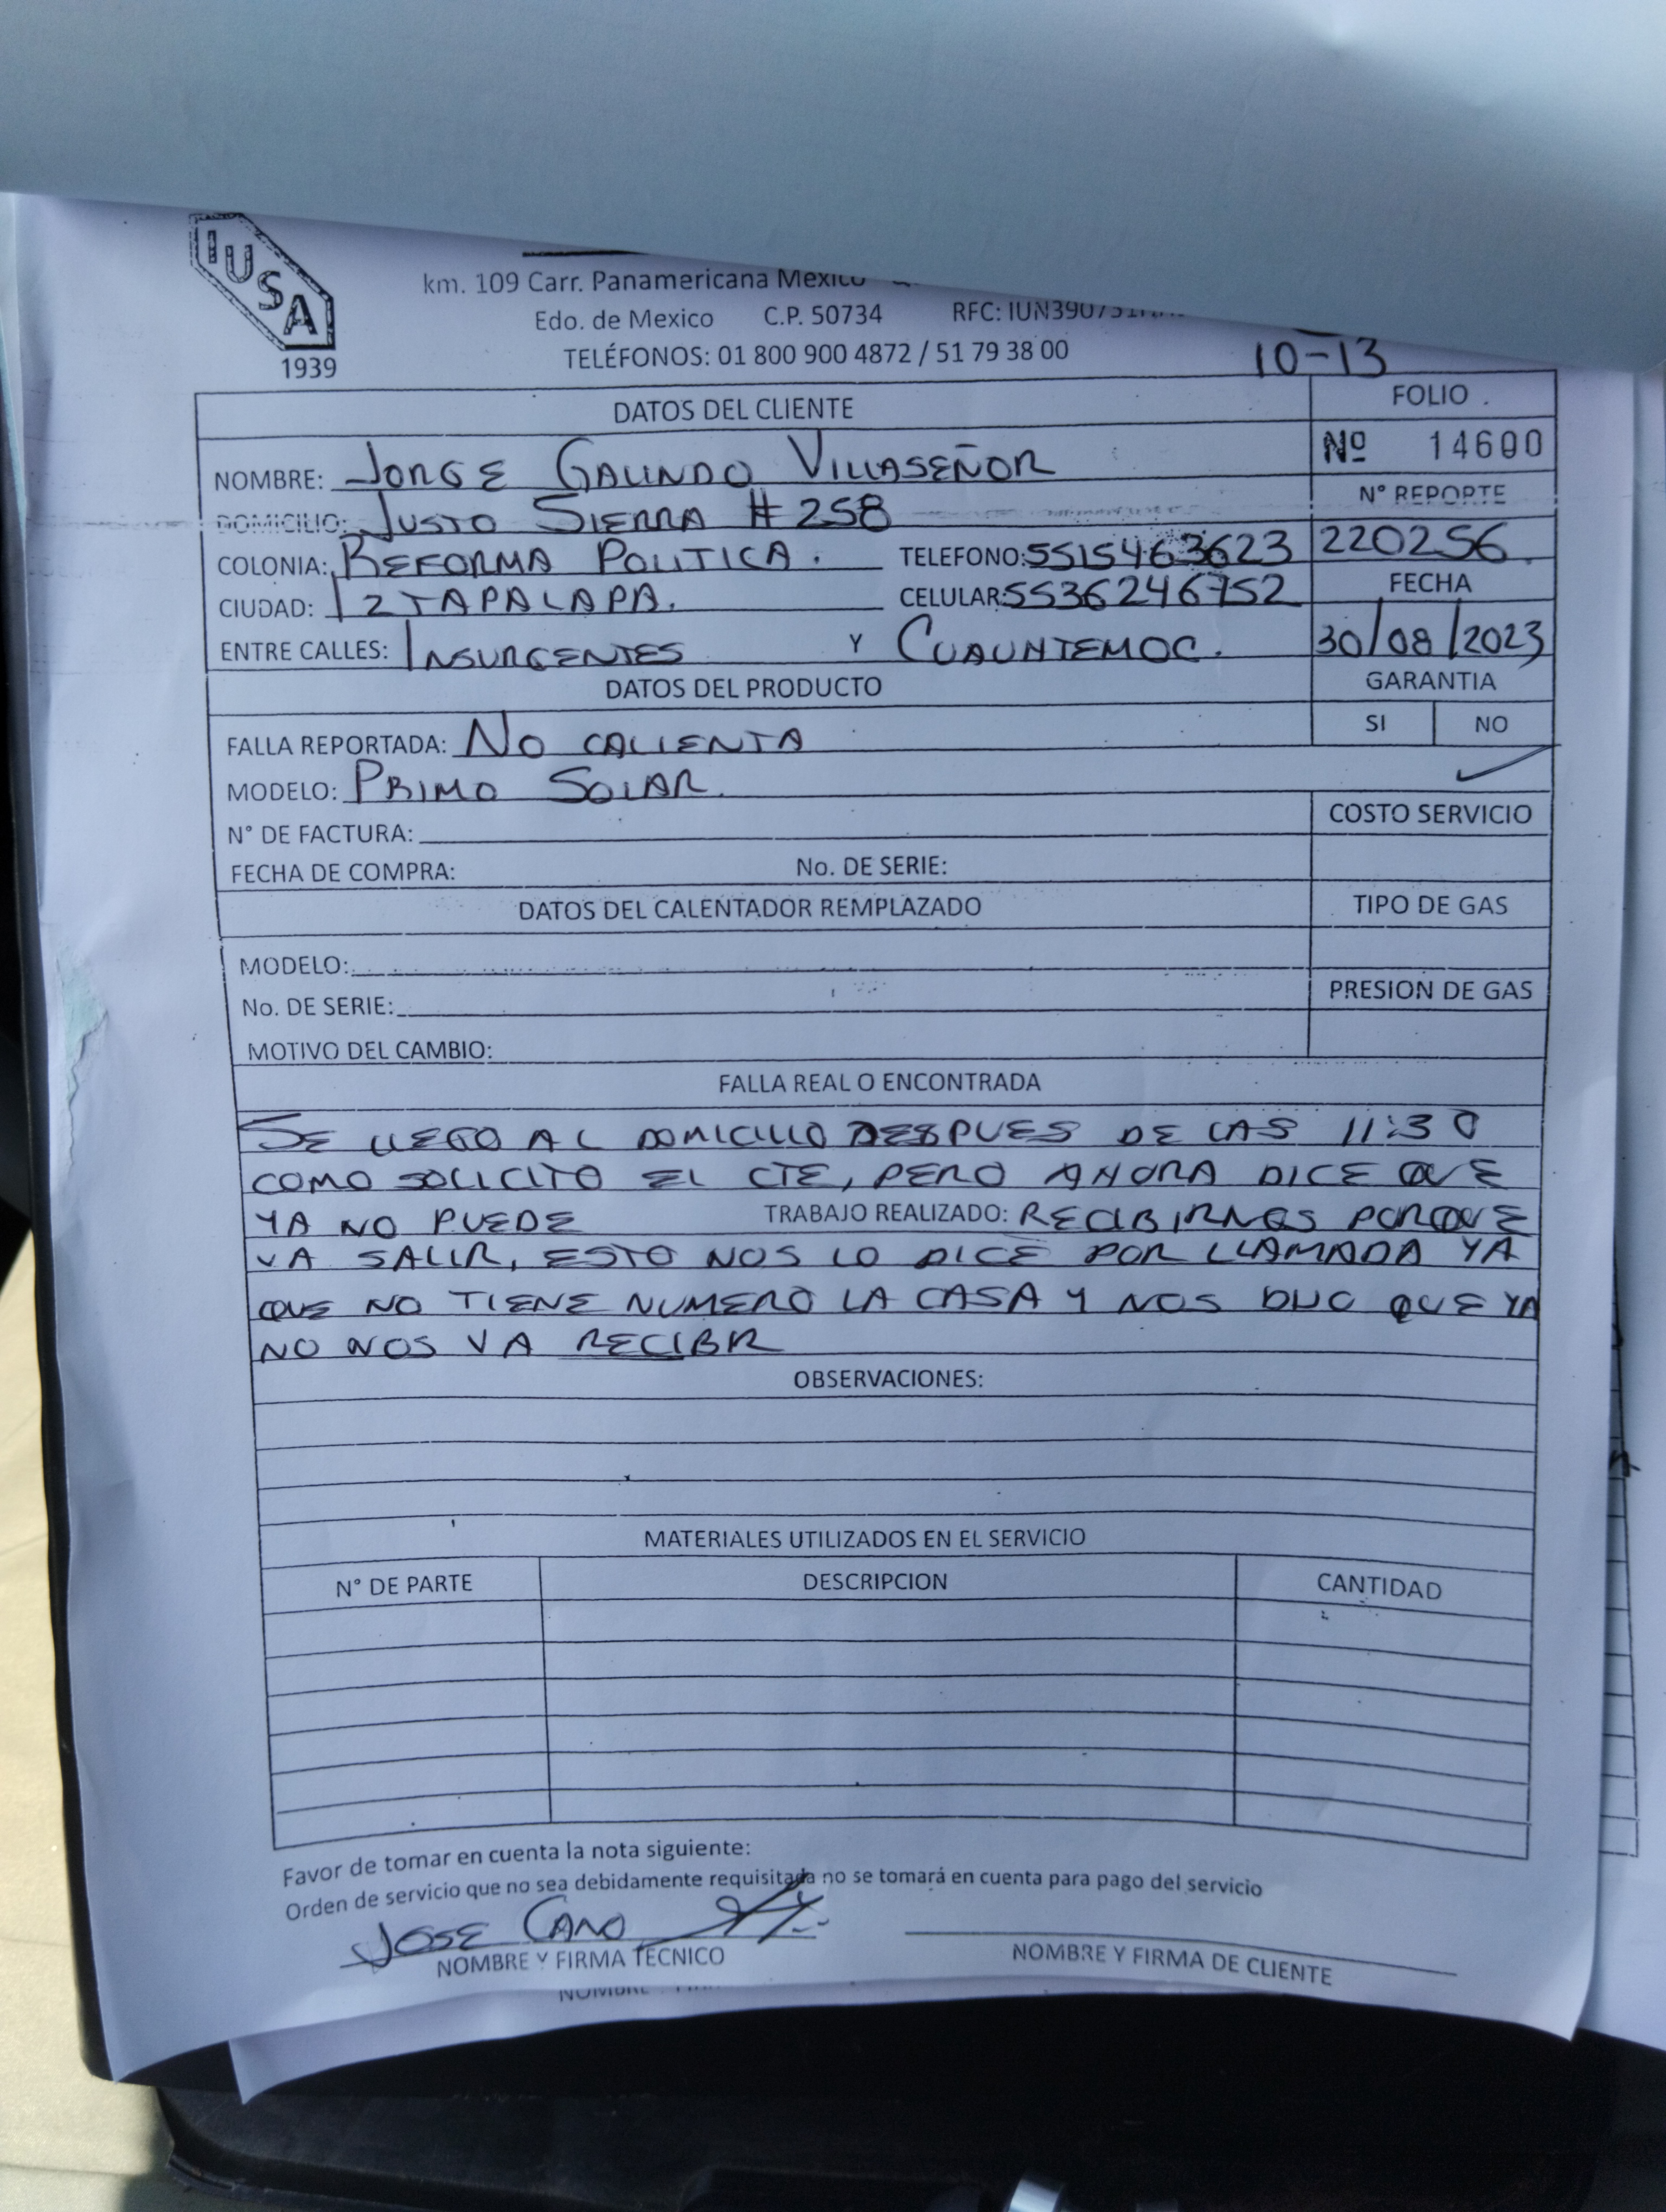 IUSA
1939
km. 109 Carr. Panamericana Mexico
Edo. de Mexico C.P. 50734 RFC:
TELÉFONOS: 01 800 900 4872 / 51 79 38 00
10-13
DATOS DEL CLIENTE FOLIO
NOMBRE: JORGE GALINDO VILLASEÑOR Nº 14600
DOMICILIO: JUSTO SIERRA # 258 N° REPORTE
COLONIA: REFORMA POLITICA. TELEFONO: 5515463623 220256
CIUDAD: IZTAPALAPA. CELULAR: 5536246752 FECHA
ENTRE CALLES: INSURGENTES Y CUAUNTEMOC. 30/08/2023
DATOS DEL PRODUCTO GARANTIA
FALLA REPORTADA: NO CALIENTA SI NO
MODELO: PRIMO SOLAR. ✓
N° DE FACTURA: COSTO SERVICIO
FECHA DE COMPRA: No. DE SERIE:
DATOS DEL CALENTADOR REMPLAZADO TIPO DE GAS
MODELO:
No. DE SERIE: PRESION DE GAS
MOTIVO DEL CAMBIO:
FALLA REAL O ENCONTRADA
SE LLEGO AL DOMICILIO DESPUES DE LAS 11:30
COMO SOLICITO EL CTE, PERO AHORA DICE QUE
YA NO PUEDE TRABAJO REALIZADO: RECIBIRNOS PORQUE
VA SALIR, ESTO NOS LO DICE POR LLAMADA YA
QUE NO TIENE NUMERO LA CASA Y NOS DIJO QUE YA
NO NOS VA RECIBIR
OBSERVACIONES:
MATERIALES UTILIZADOS EN EL SERVICIO
N° DE PARTE DESCRIPCION CANTIDAD
Favor de tomar en cuenta la nota siguiente:
Orden de servicio que no sea debidamente requisitada no se tomará en cuenta para pago del servicio
JOSE CANO
NOMBRE Y FIRMA TECNICO NOMBRE Y FIRMA DE CLIENTE